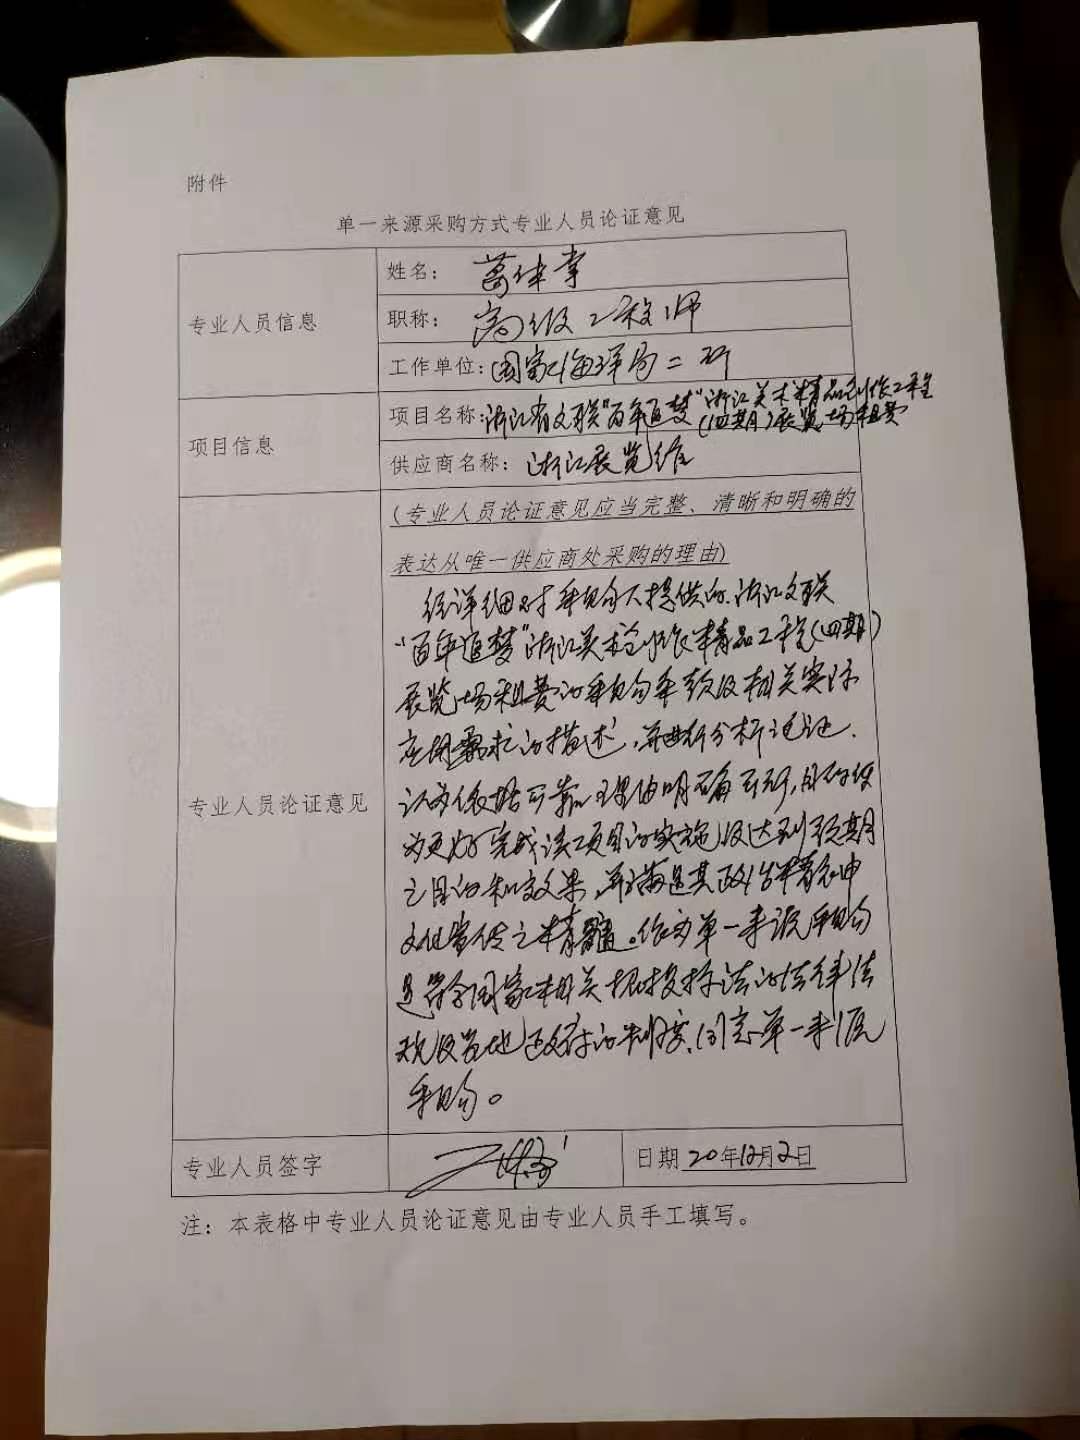 附件
单一来源采购方式专业人员论证意见
专业人员信息
姓名：葛
职称：高级工程师
工作单位：国家海洋局二所
项目信息
项目名称：浙江省文联“百年追梦”浙江美术精品创作工程
（四期）展览场租费
供应商名称：浙江展览馆
专业人员论证意见
（专业人员论证意见应当完整、清晰和明确的
表达从唯一供应商处采购的理由）
经详细对采购人提供的浙江文联
“百年追梦”浙江美术创作精品工程（四期）
展览场租费的采购条款及相关实际
应用需求的描述，并进行分析论证.
认为依据可靠、理由明确可行，
为更好完成该项目的实施及达到预期
之目的和效果，并满足其政治精神
文化宣传之精髓。作为单一来源采购
是符合国家相关招投标法的法律法
规及当地政府的制度，同意单一来源
采购。
专业人员签字
日期 20年12月2日
注：本表格中专业人员论证意见由专业人员手工填写。